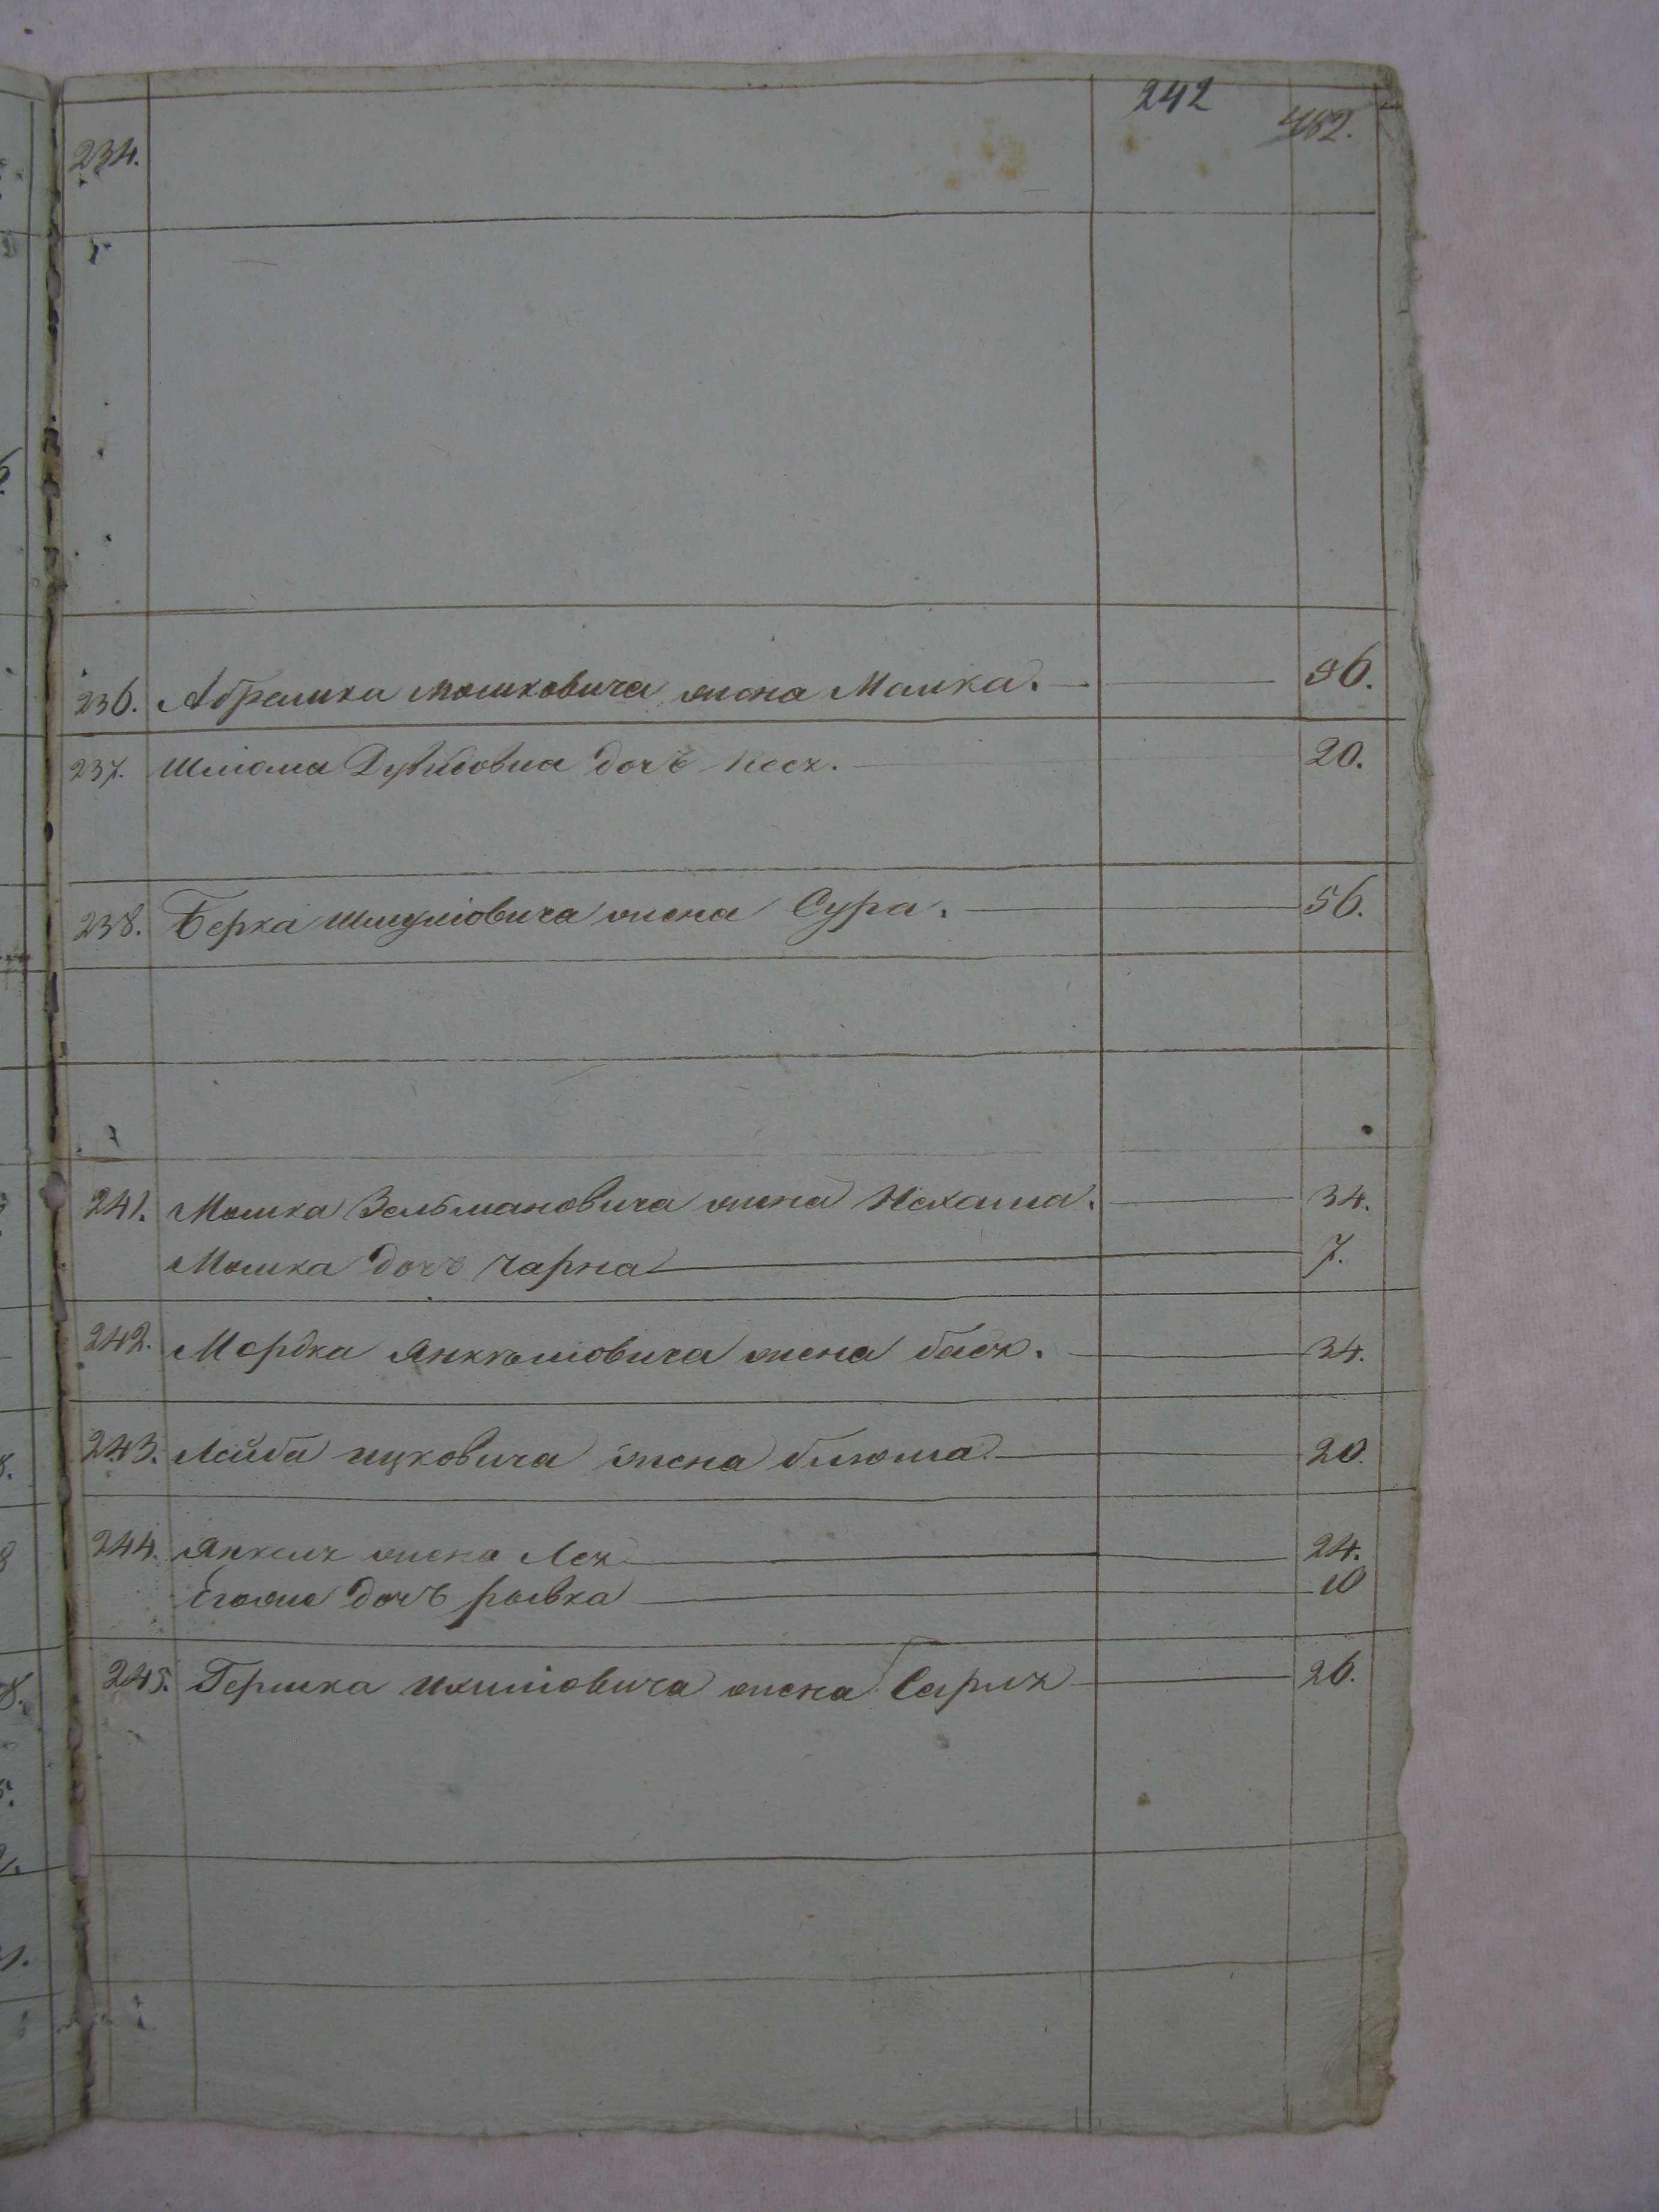 242
482.
234.
236. Абрамка Мошковича жена Малка. 36.
237. Шлома Дувидовича дочь Песя. 20.
238. Берка Шмулiовича жена Сура. 56.
241. Мошка Зельмановича жена Нехама. 34.
Мошка дочь Чарна 7.
242. Мордка Янкелiовича жена бася. 34.
243. Лейба ицковича жена блюма 20.
244. Янкеля жена Лея 24.
Егоже дочь рывка 10
245. Гершка жена 26.